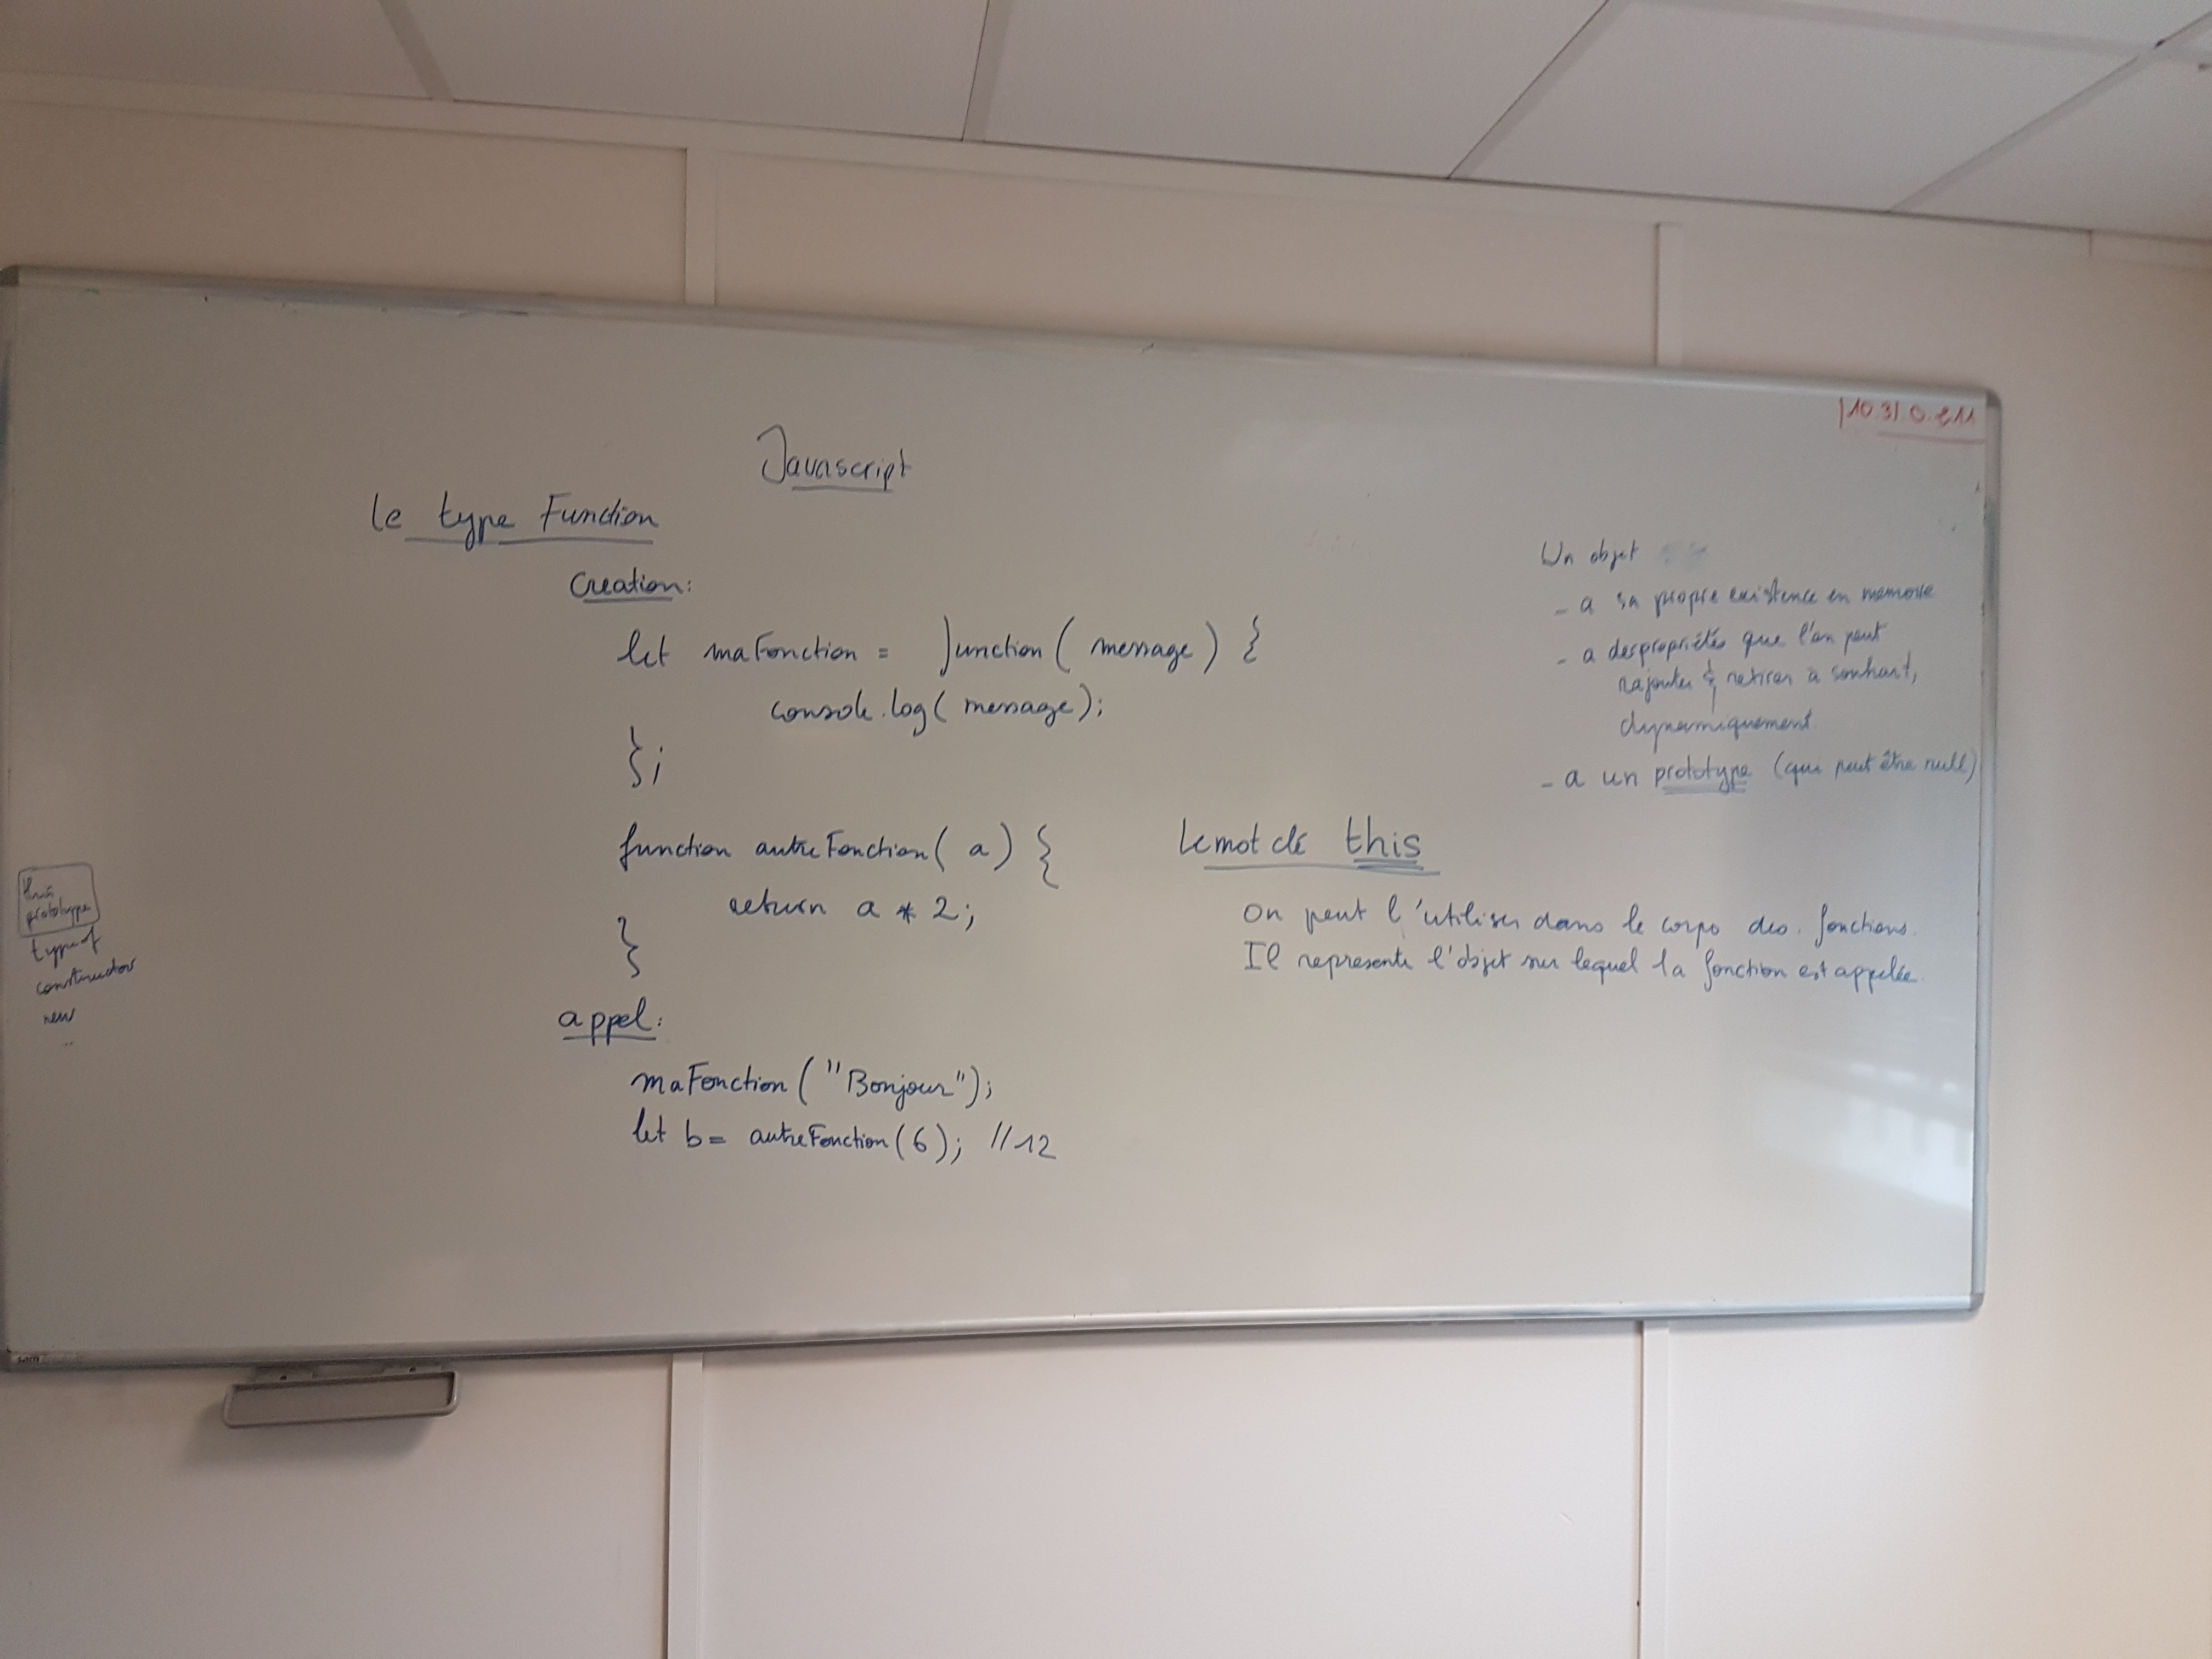 Javascript
le type Function
Creation:
let maFonction = function( message) {
console.log( message);
};
function autreFonction( a) {
return a * 2;
}
appel:
maFonction ("Bonjour");
let b = autreFonction(6); //12
this
prototype
typeof
constructor
new
...
Un objet
- a sa propre existence en memoire
- a des propriétés que l'on peut
rajouter & retirer à souhait,
dynamiquement
- a un prototype (qui peut être null)
Le mot clé this
On peut l'utiliser dans le corps des fonctions.
Il represente l'objet sur lequel la fonction est appelée.